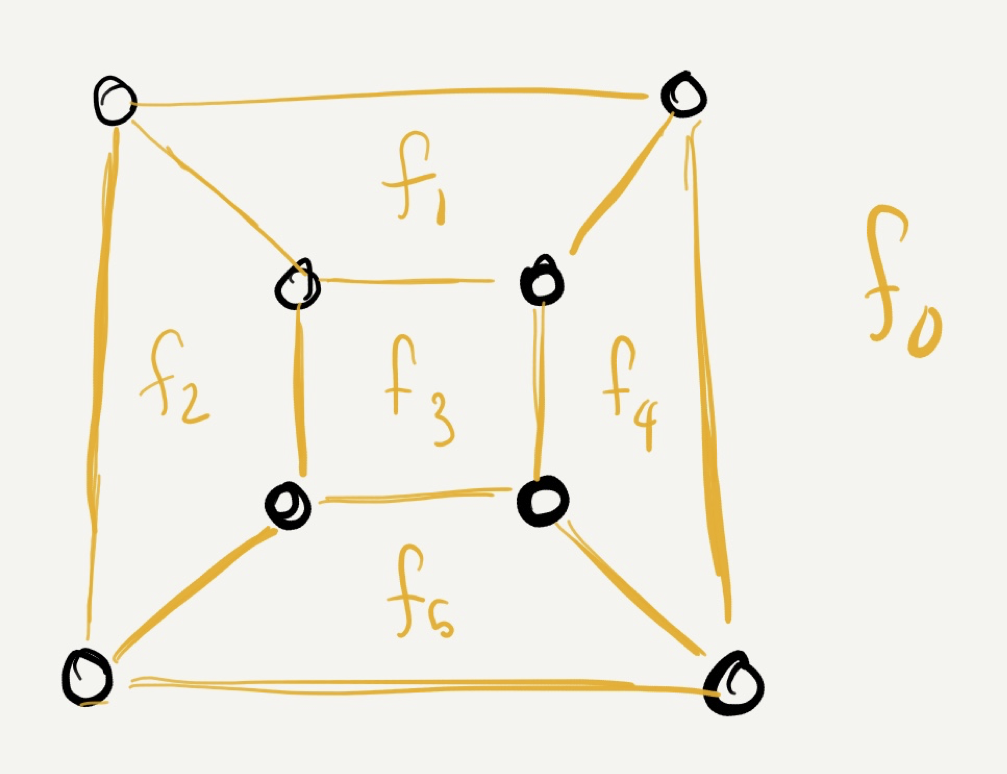 f₁
f₀
f₂
f₃
f₄
f₅